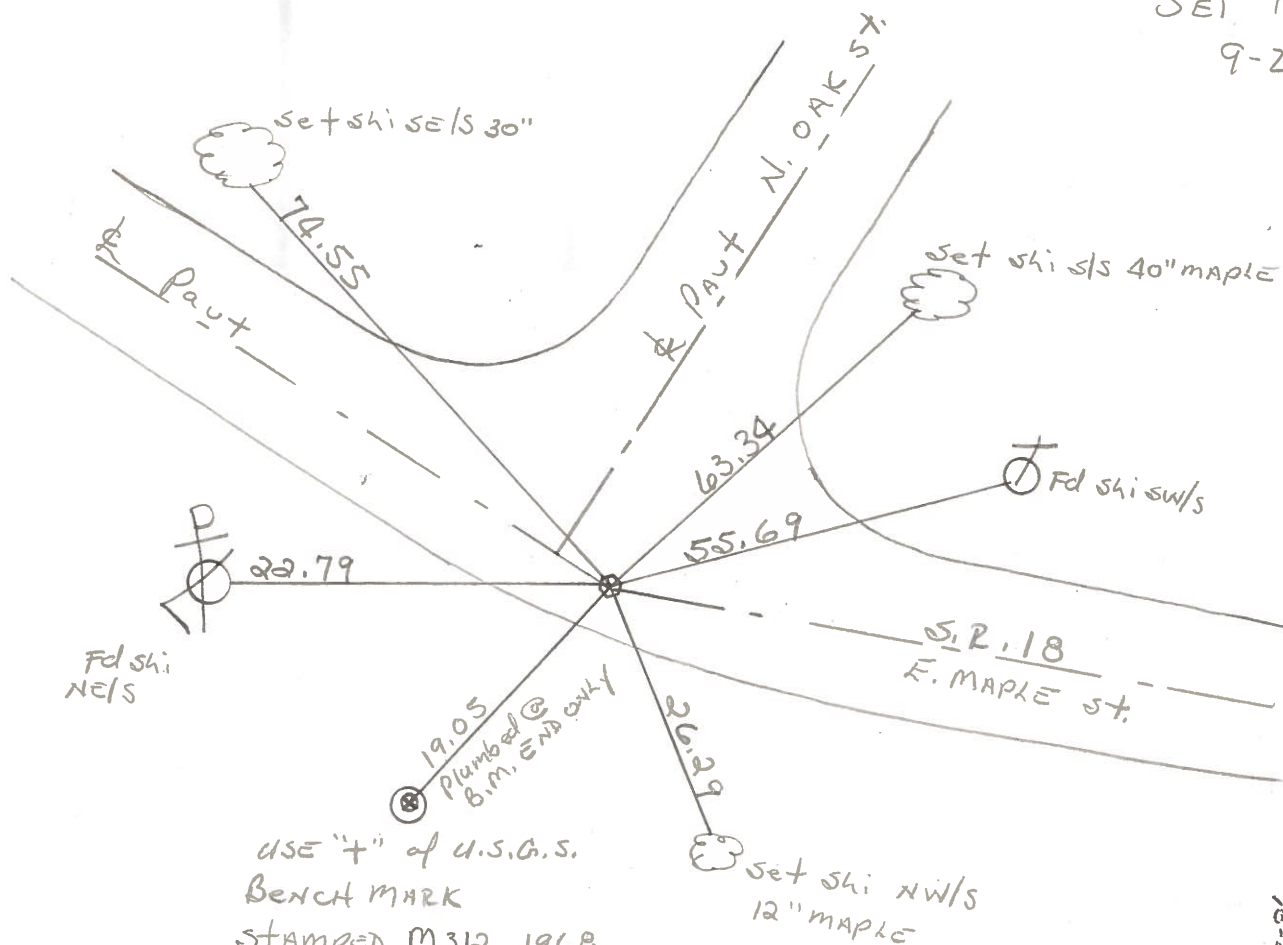 SET
9-2
set shi SE/S 30"
74.55
N. OAK St.
℄ Pavt
℄ Pavt
set shi S/S 40" MAPLE
63.34
Fd shi SW/S
55.69
P
22.79
Fd shi
NE/S
S.R. 18
E. MAPLE St.
19.05
Plumbed @
B.M. END ONLY
26.29
USE "+" of U.S.G.S.
BENCH MARK
STAMPED M312 1968
set shi NW/S
12" MAPLE